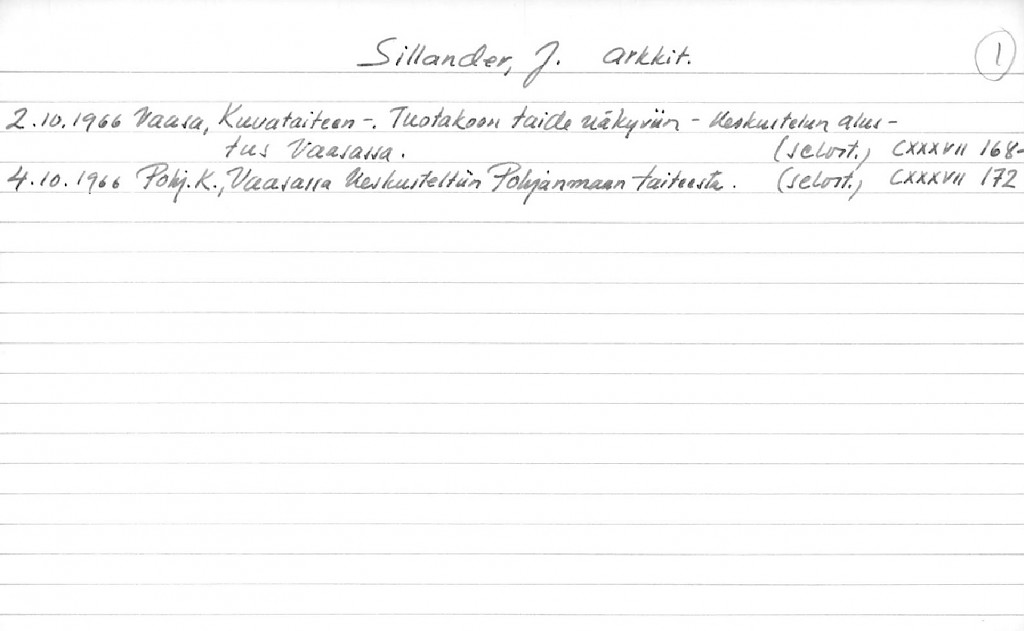 Sillander, J. arkkit. 1
2.10.1966 Vaasa, Kuvataiteen -. Tuotakoon taide näkyviin - Keskustelun alus-
tus Vaasassa. (selost.) CXXXVII 168-
4.10.1966 Pohj.K., Vaasassa keskusteltiin Pohjanmaan taiteesta. (selost.) CXXXVII 172